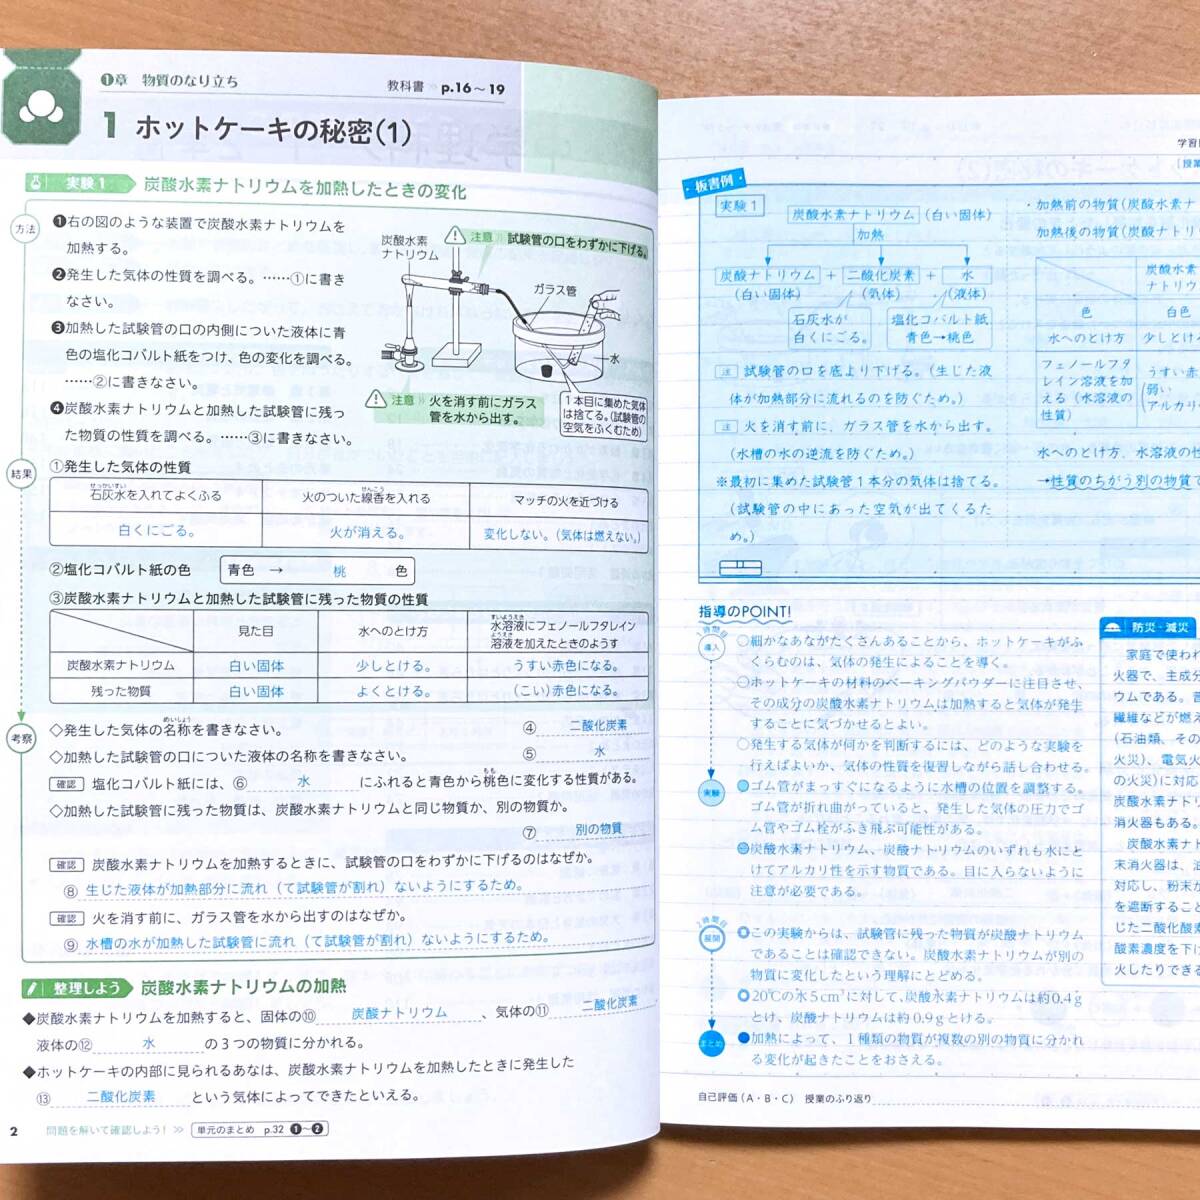 ❶章 物質のなり立ち
教科書 p.16～19
1 ホットケーキの秘密(1)
実験1 炭酸水素ナトリウムを加熱したときの変化
方法
❶右の図のような装置で炭酸水素ナトリウムを
加熱する。
❷発生した気体の性質を調べる。……①に書き
なさい。
❸加熱した試験管の口の内側についた液体に青
色の塩化コバルト紙をつけ、色の変化を調べる。
……②に書きなさい。
❹炭酸水素ナトリウムと加熱した試験管に残っ
た物質の性質を調べる。……③に書きなさい。
炭酸水素
ナトリウム
注意 試験管の口をわずかに下げる。
ガラス管
水
注意 火を消す前にガラス
管を水から出す。
1本目に集めた気体
は捨てる。(試験管の
空気をふくむため)
結果
①発生した気体の性質
せっかいすい
石灰水を入れてよくふる
せんこう
火のついた線香を入れる
マッチの火を近づける
白くにごる。
火が消える。
変化しない。(気体は燃えない。)
②塩化コバルト紙の色
青色 → 桃 色
③炭酸水素ナトリウムと加熱した試験管に残った物質の性質
見た目
水へのとけ方
すいようえき
水溶液にフェノールフタレイン
ようえき
溶液を加えたときのようす
炭酸水素ナトリウム
白い固体
少しとける。
うすい赤色になる。
残った物質
白い固体
よくとける。
(こい)赤色になる。
考察
めいしょう
◇発生した気体の名称を書きなさい。
④ 二酸化炭素
◇加熱した試験管の口についた液体の名称を書きなさい。
⑤ 水
もも
確認 塩化コバルト紙には、⑥ 水 にふれると青色から桃色に変化する性質がある。
◇加熱した試験管に残った物質は、炭酸水素ナトリウムと同じ物質か、別の物質か。
⑦ 別の物質
確認 炭酸水素ナトリウムを加熱するときに、試験管の口をわずかに下げるのはなぜか。
⑧ 生じた液体が加熱部分に流れ(て試験管が割れ)ないようにするため。
確認 火を消す前に、ガラス管を水から出すのはなぜか。
⑨ 水槽の水が加熱した試験管に流れ(て試験管が割れ)ないようにするため。
整理しよう 炭酸水素ナトリウムの加熱
◆炭酸水素ナトリウムを加熱すると、固体の⑩ 炭酸ナトリウム 、気体の⑪ 二酸化炭素
液体の⑫ 水 の3つの物質に分かれる。
◆ホットケーキの内部に見られるあなは、炭酸水素ナトリウムを加熱したときに発生した
⑬ 二酸化炭素 という気体によってできたといえる。
2 問題を解いて確認しよう! >> 単元のまとめ p.32 ❶～❷
学習
[授業
板書例
実験1
炭酸水素ナトリウム (白い固体)
加熱
炭酸ナトリウム + 二酸化炭素 + 水
(白い固体) (気体) (液体)
石灰水が
白くにごる。
塩化コバルト紙
青色→桃色
注 試験管の口を底より下げる。(生じた液
体が加熱部分に流れるのを防ぐため。)
注 火を消す前に、ガラス管を水から出す。
(水槽の水の逆流を防ぐため。)
※最初に集めた試験管1本分の気体は捨てる。
(試験管の中にあった空気が出てくるた
め。)
・加熱前の物質(炭酸水素ナ
加熱後の物質(炭酸ナトリ
炭酸水素
ナトリウム
色
白色
水へのとけ方
少しとける
フェノールフタ
レイン溶液を加
える(水溶液の
性質)
うすい赤
弱い
アルカリ
水へのとけ方、水溶液の性
→性質のちがう別の物質で
指導のPOINT!
1時間目
導入
○細かなあながたくさんあることから、ホットケーキがふ
くらむのは、気体の発生によることを導く。
○ホットケーキの材料のベーキングパウダーに注目させ、
その成分の炭酸水素ナトリウムは加熱すると気体が発生
することに気づかせるとよい。
○発生する気体が何かを判断するには、どのような実験を
行えばよいか、気体の性質を復習しながら話し合わせる。
実験
ゴム管がまっすぐになるように水槽の位置を調整する。
ゴム管が折れ曲がっていると、発生した気体の圧力でゴ
ム管やゴム栓がふき飛ぶ可能性がある。
炭酸水素ナトリウム、炭酸ナトリウムのいずれも水にと
けてアルカリ性を示す物質である。目に入らないように
注意が必要である。
2時間目
展開
この実験からは、試験管に残った物質が炭酸ナトリウム
であることは確認できない。炭酸水素ナトリウムが別の
物質に変化したという理解にとどめる。
20℃の水5cm³に対して、炭酸水素ナトリウムは約0.4g
とけ、炭酸ナトリウムは約0.9gとける。
まとめ
●加熱によって、1種類の物質が複数の別の物質に分かれ
る変化が起きたことをおさえる。
防災・減災
家庭で使われ
火器で、主成分
ウムである。
繊維などが燃え
(石油類、その
火災)、電気火
の火災)に対応
炭酸水素ナトリ
消火器もある。
炭酸水素ナト
末消火器は、
対応し、粉末か
を遮断すること
じた二酸化酸素
酸素濃度を下げ
火したりできる
自己評価(A・B・C) 授業のふり返り